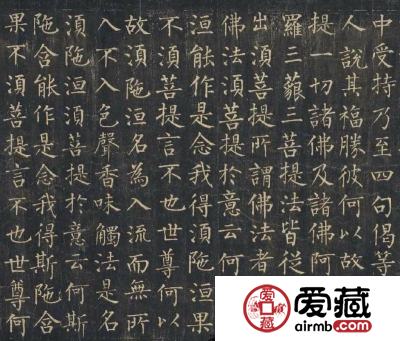 中受持乃至四句偈等
人說其福勝彼何以故
提一切諸佛及諸佛阿
羅三藐三菩提法皆従
出湏菩提所謂佛法者
佛法湏菩提於意云何
洹能作是念我得湏陁洹果
不湏菩提言不也世尊何以
故湏陁洹名為入流而無所
入不入色聲香味觸法是名
湏陁洹湏菩提於意云何斯
陁含能作是念我得斯陁含
果不湏菩提言不也世尊何
爱藏
airmb.com